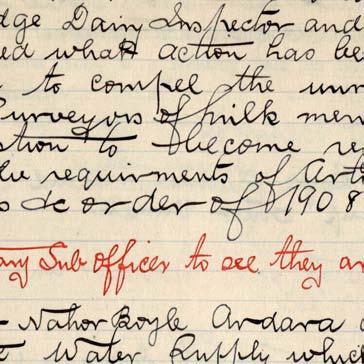 dge Dairy Inspector and
ed what action has be
to compel the unr
Purveyors of milk men
stion to become re
the requirments of Arti
s &c order of 1908
ary Sub Officer to see they ar
Nahor Boyle Ardara
Water Supply whic